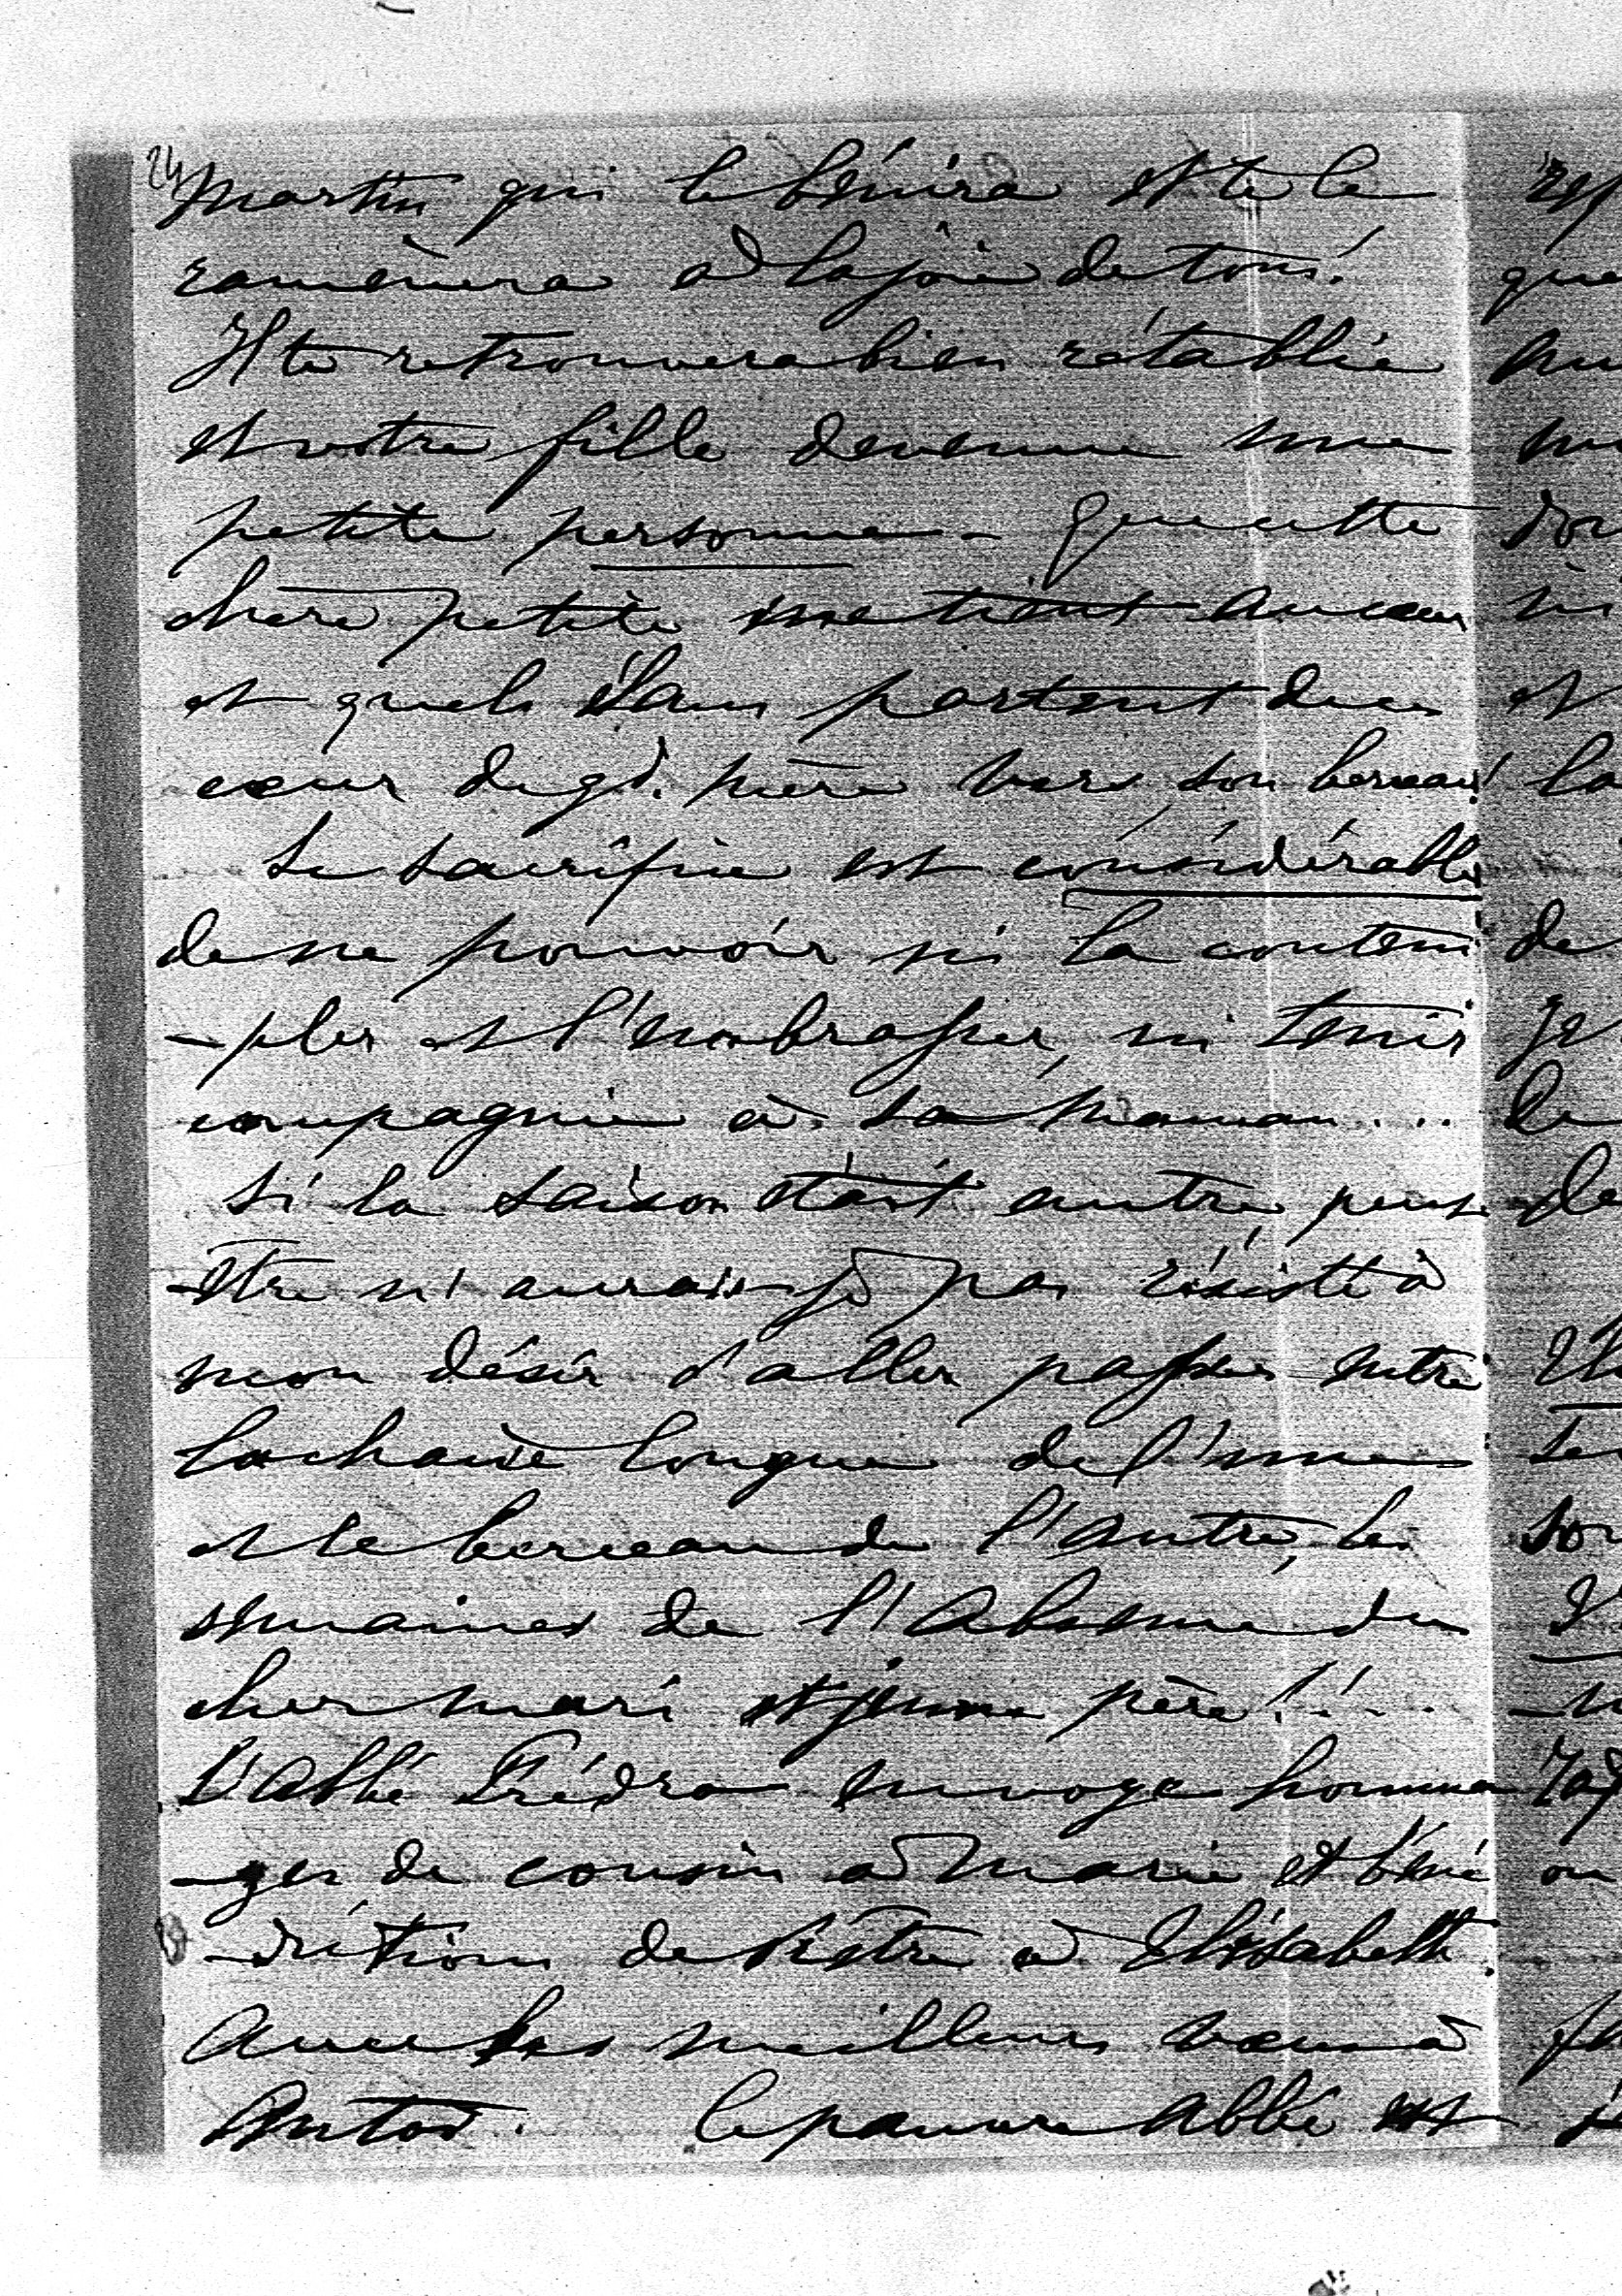 24
Martin qui le bénira et te le
ramènera à la joie de tous!
Il te retrouvera bien rétablie
et votre fille devenue une
petite personne - Que cette
chère petite me tient au cœur
et quels élans partent de ce
cœur de gd. mère vers son berceau!
Le sacrifice est considérable
de ne pouvoir ni la contem
-pler et l'embrasser, ni tenir
compagnie à sa maman ...
si la saison était autre, peut-
-être n'aurais-je pas résisté à
mon désir d'aller passer entre
la chaise longue de l'une
et le berceau de l'autre, les
semaines de l'absence du
cher mari et jeune père!!...
L'abbé envoye homma
-ges de cousin à Marie et béné
-dictions de Prêtre à Elisabeth.
Avec ses meilleurs vœux à
Le pauvre Abbé est